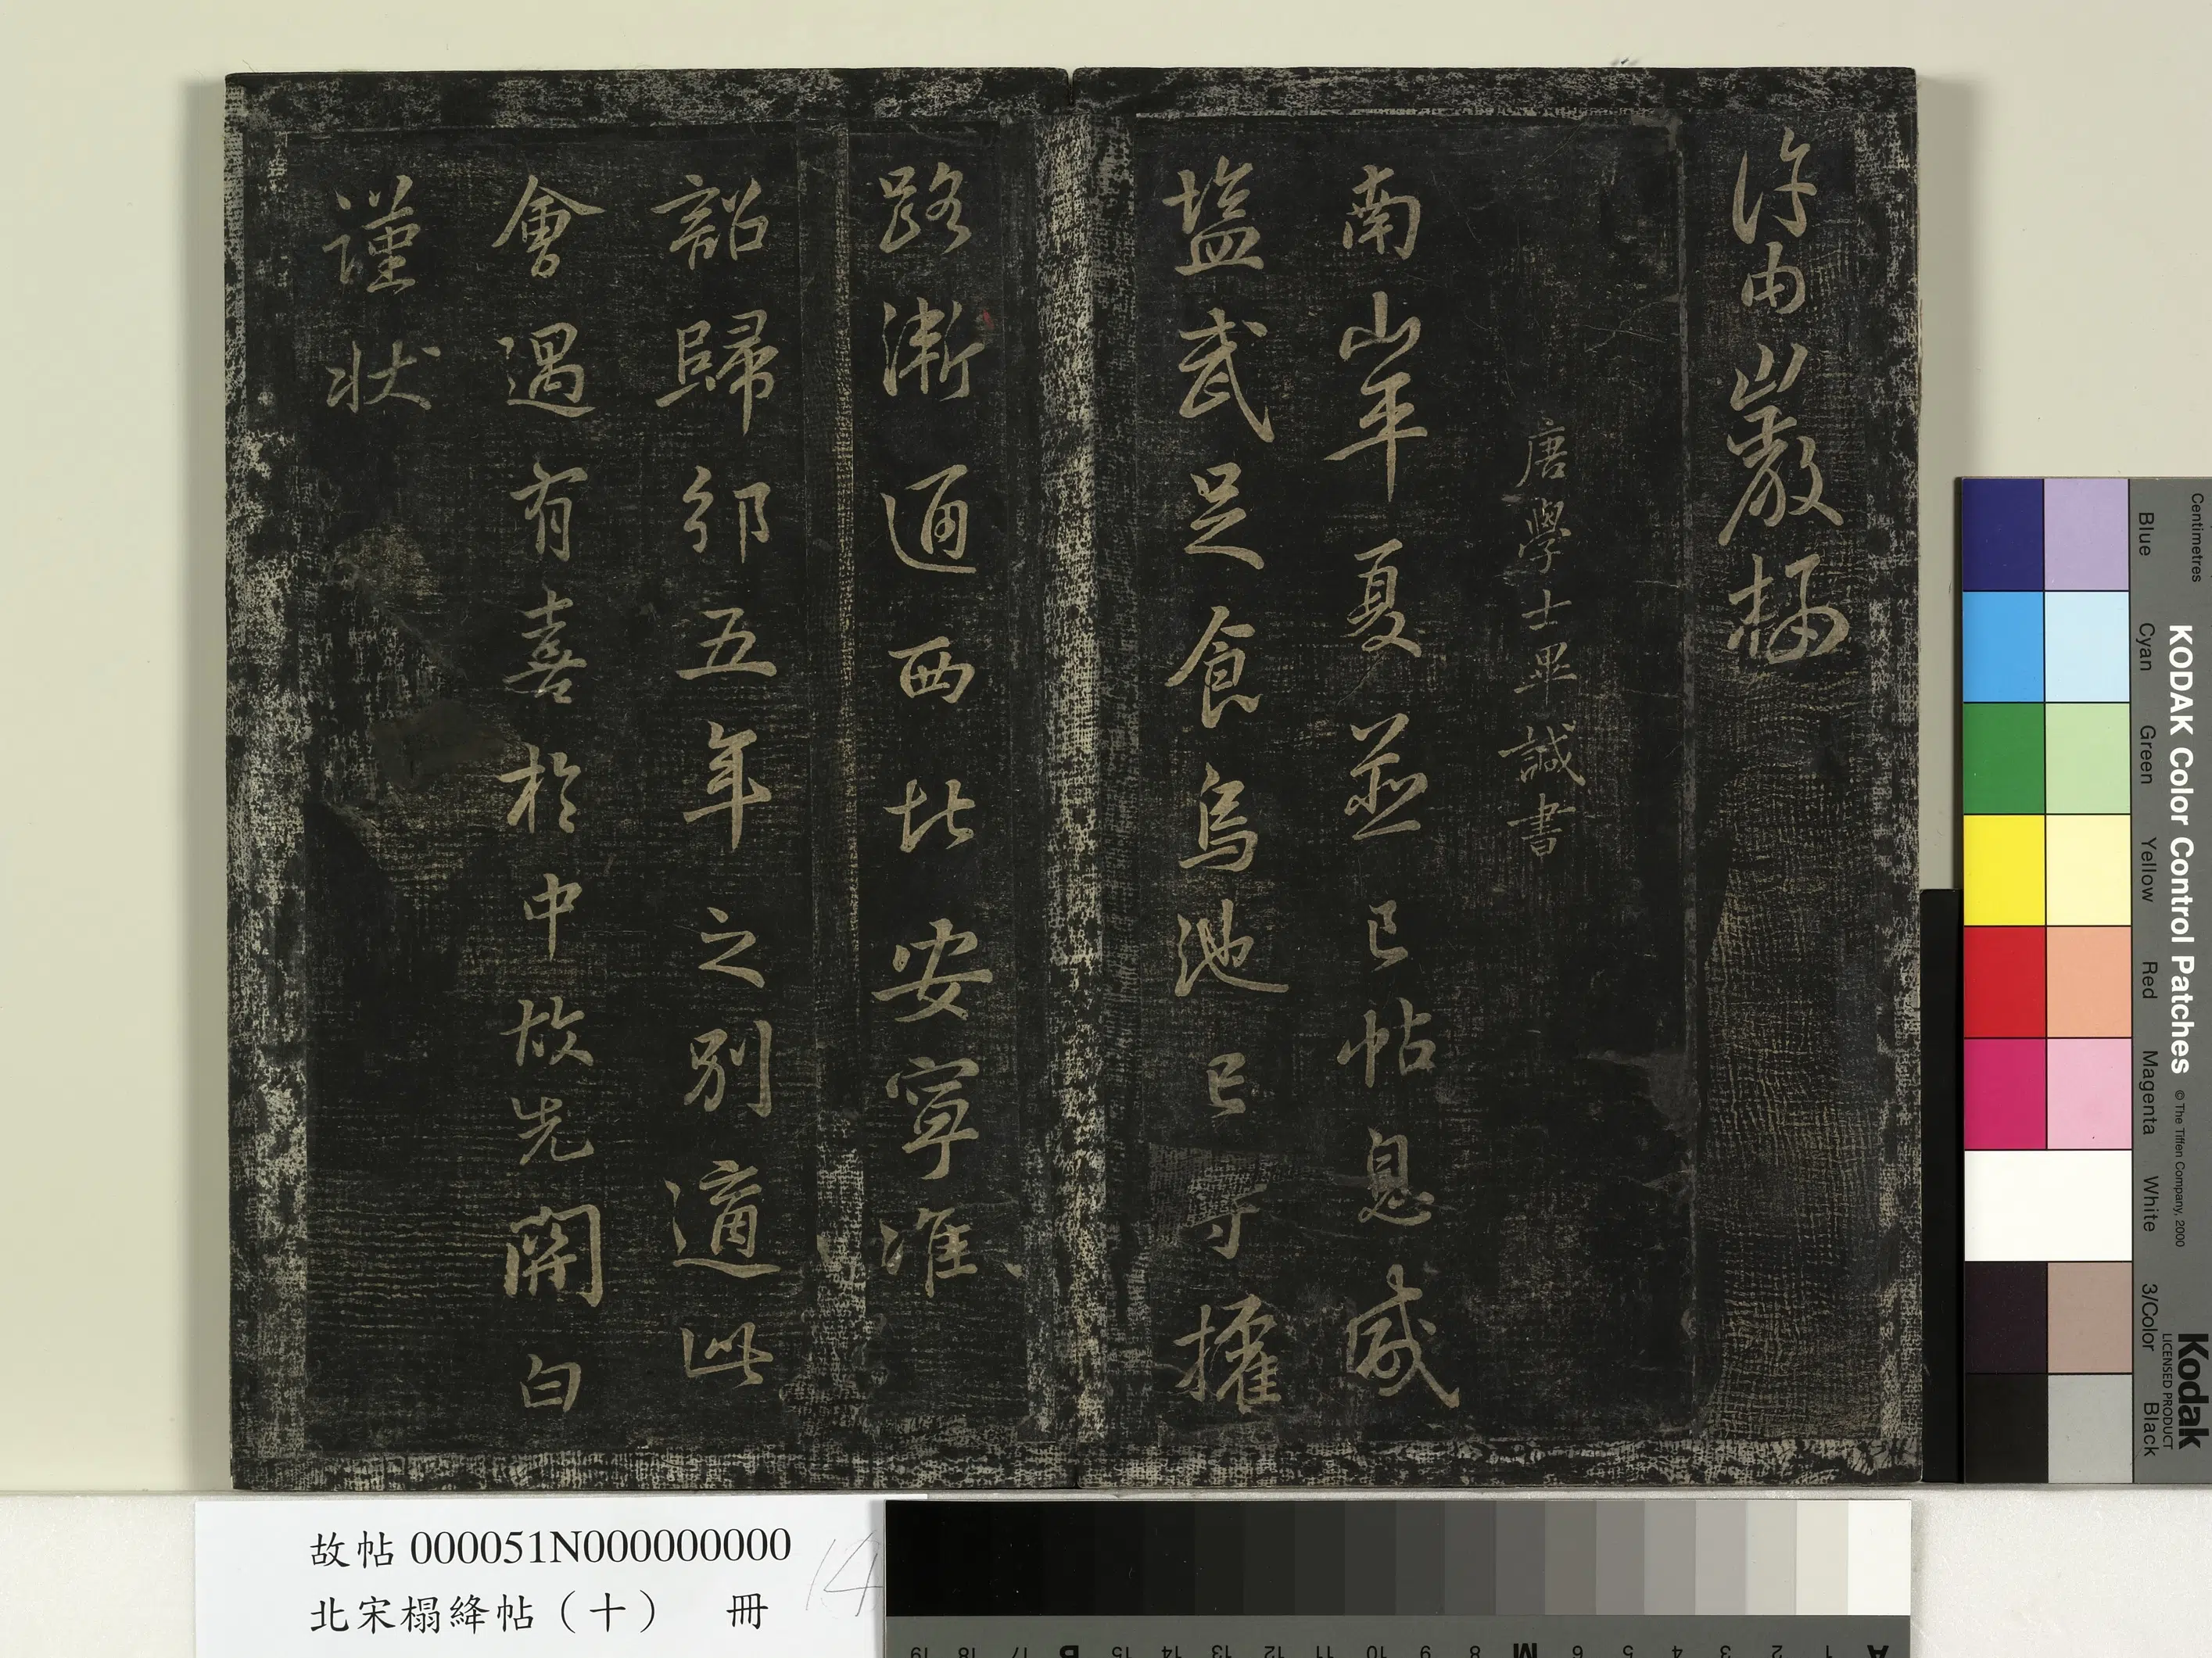 許由巖棲
唐學士畢諴書
南山平夏並已帖息咸
塩武足食烏池已守擢
路漸通西北安寧准
詔歸邠五年之別適此
會遇有喜於中故先開白
謹狀
故帖 000051N000000000
北宋榻絳帖（十） 冊
14
KODAK Color Control Patches © The Tiffen Company, 2000
Kodak
LICENSED PRODUCT
Centimetres
Blue Cyan Green Yellow Red Magenta White 3/Color Black
A 1 2 3 4 5 6 M 8 9 10 11 12 13 14 15 B 17 18 19